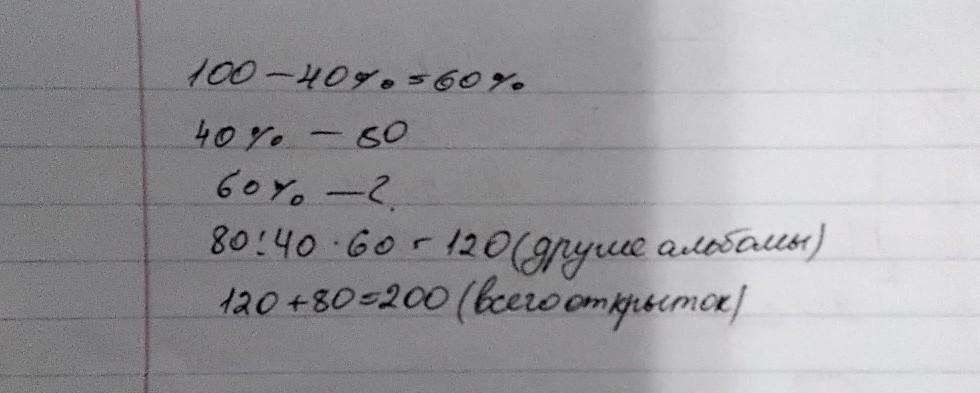 100 - 40% = 60%
40% - 80
60% - ?
80 : 40 · 60 = 120 (другие альбомы)
120 + 80 = 200 (всего открыток)